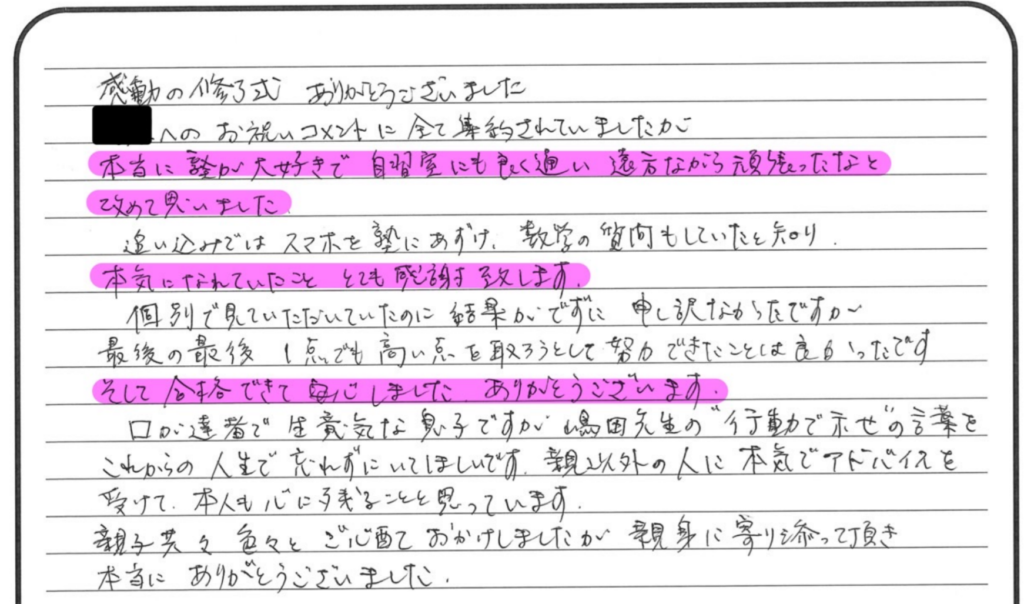 感動の修了式 ありがとうございました
へのお祝いコメントに全て集約されていましたが
本当に塾が大好きで 自習室にも良く通い 遠方ながら頑張ったなと
改めて思いました
追い込みでは スマホを塾にあずけ、数学の質問もしていたと知り、
本気になれていたこと とても感謝致します。
個別で見ていただいていたのに 結果がでずに 申し訳なかったですが
最後の最後 1点でも 高い点を取ろうとして 努力できたことは良かったです
そして 合格できて 安心しました。ありがとうございます。
口が達者で 生意気な息子ですが 嶋田先生の "行動で示せ"の言葉を
これからの人生で 忘れずにいてほしいです。親以外の人に 本気でアドバイスを
受けて、本人も心に残ることと思っています。
親子共々 色々と ご心配て おかけしましたが 親身に寄り添って頂き
本当に ありがとうございました。